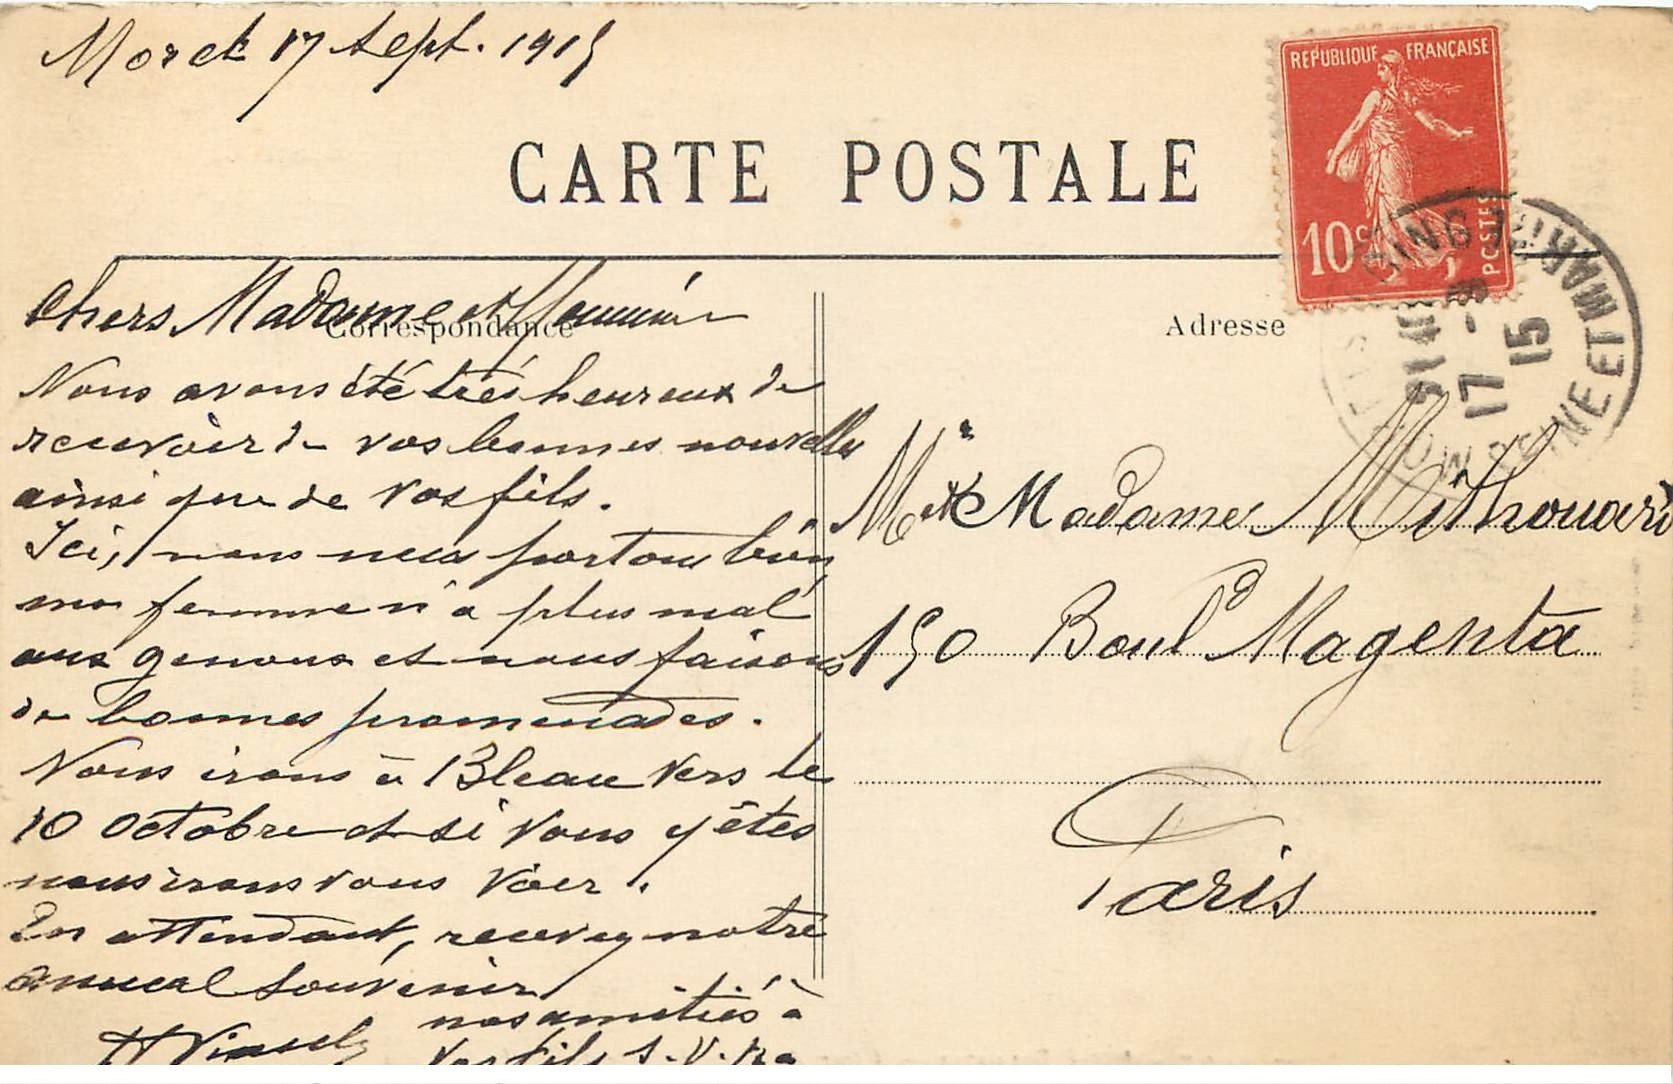 Moret 17 Sept. 1915
RÉPUBLIQUE FRANÇAISE
10c
POSTES
CARTE POSTALE
Correspondance
Adresse
17 - 9
15
SEINE ET MARNE
Chers Madame et Monsieur
Nous avons été très heureux de
recevoir de vos bonnes nouvelles
ainsi que de vos fils.
Ici, nous nous portons bien,
ma femme n'a plus mal
aux genoux et nous faisons
de bonnes promenades.
Nous irons à Bleau vers le
10 Octobre et si vous y êtes
nous irons vous voir.
En attendant, recevez notre
amical souvenir
nos amitiés à
vos fils S.V.P.
Mr et Madame Mithouard
150 Boul d Magenta
Paris